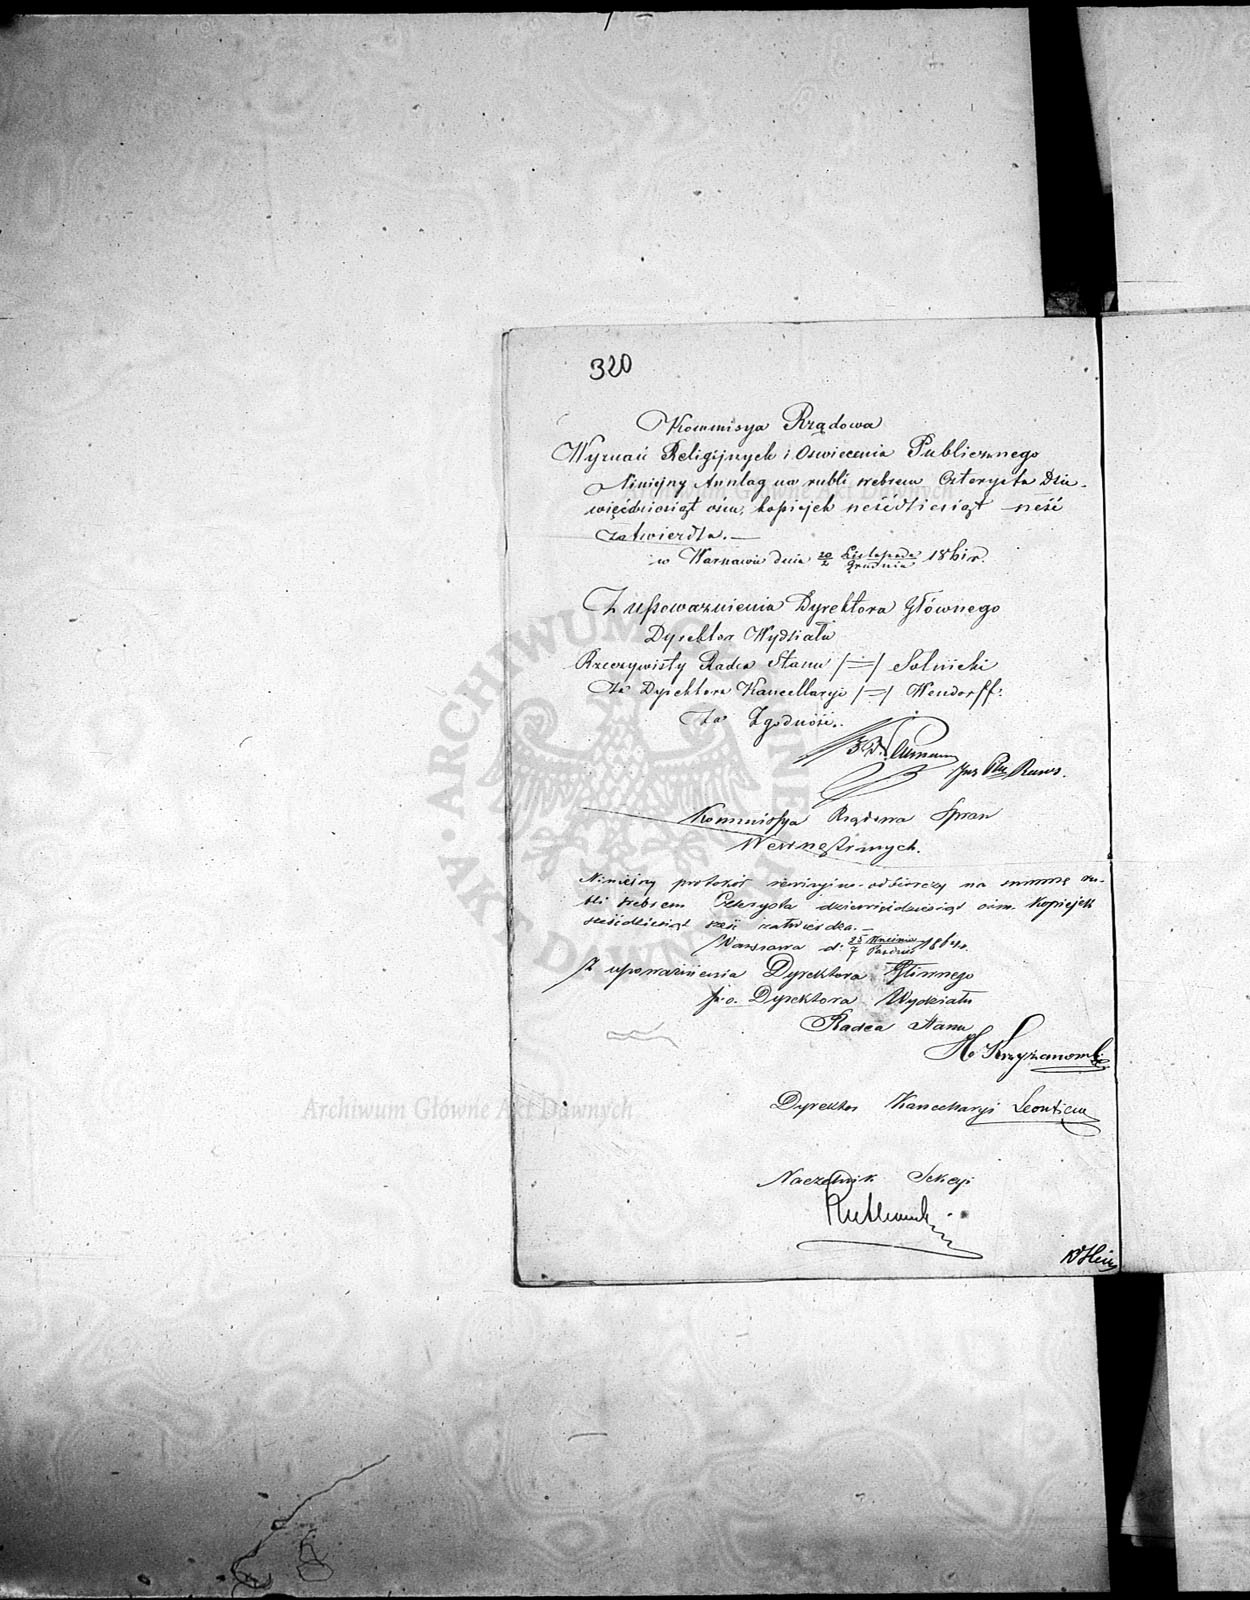 320
Kommisya Rządowa
Wyznań Religijnych i Oswiecenia Publicznego
Niniejszy Anszlag na rubli srebrem Czterysta Dzie-
więćdziesiąt ośm, kopiejek sześćdziesiąt sześć
zatwierdza.—
w Warszawie dnia 20/2 Listopada/Grudnia 1861 r.
Z upoważnienia Dyrektora Głównego
Dyrektor Wydziału
Rzeczywisty Radca Stanu /—/ Solnicki
Za Dyrektora Kancellaryi /—/ Wendorff.
Za Zgodność.
Kommissya Rządowa Spraw
Wewnętrznych.
Niniejszy protokół rewizyjno-odbiorczy na summę ru-
bli srebrem Czterysta dziewięćdziesiąt ośm. Kopiejek
sześćdziesiąt sześć zatwierdza.—
Warszawa d. 25 Września/7 Paźdz
Z upoważnienia Dyrektora Głównego
p.o. Dyrektora Wydziału
Radca Stanu
Krzyżanowski
Dyrektor Kancellaryi
Naczelnik Sekcyi
Archiwum Główne Akt Dawnych
ARCHIWUM GŁÓWNE AKT DAWNYCH
Archiwum Główne Akt Dawnych